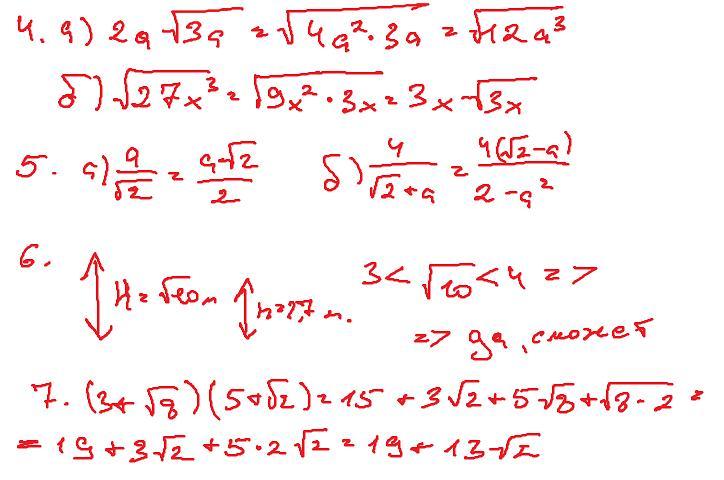 4. а) 2a √3a = √4a²·3a = √12a³
б) √27x³ = √9x²·3x = 3x √3x
5. а) a/√2 = a√2/2 б) 4/(√2+a) = 4(√2-a)/(2-a²)
6.
H = √10 м h = 1,7 м. 3 < √10 < 4 =>
=> да, сможет
7. (3+√8)(5+√2) = 15 + 3√2 + 5√8 + √8·2 =
= 19 + 3√2 + 5·2√2 = 19 + 13√2